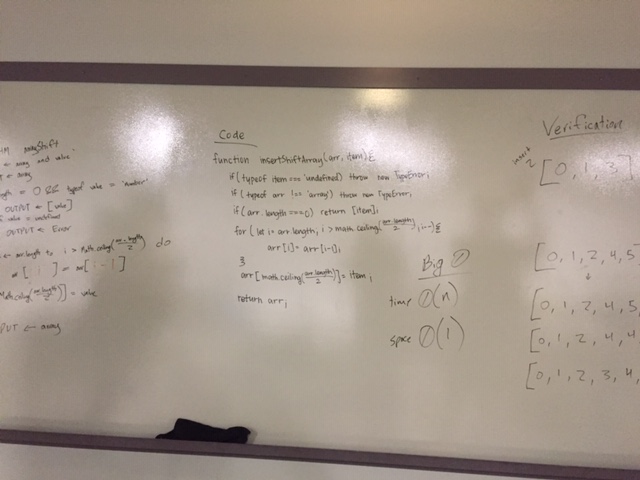 arrayShift
← array and value
← array
length = 0 && typeof value = 'number'
OUTPUT ← [value]
value = undefined
OUTPUT ← Error
← arr.length to, i > Math.ceiling(arr.length/2) do
arr[i] = arr[i-1]
Math.ceiling(arr.length/2)] = value
PUT ← array
Code
function insertShiftArray(arr, item){
if (typeof item === 'undefined') throw new TypeError;
if (typeof arr !== 'array') throw new TypeError;
if (arr.length === 0) return [item];
for (let i = arr.length; i > math.ceiling(arr.length/2); i--){
arr[i] = arr[i-1];
}
arr[math.ceiling(arr.length/2)] = item;
return arr;
Big O
time O(n)
space O(1)
Verification
insert 2
[0, 1, 3]
[0, 1, 2, 4, 5
[0, 1, 2, 4, 5,
[0, 1, 2, 4, 4
[0, 1, 2, 3, 4,